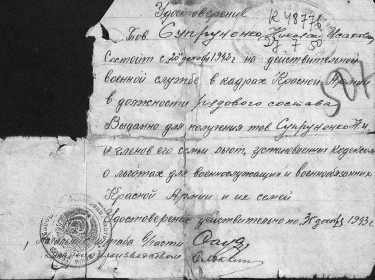 Удостоверение
К 48776
Тов Супруненко Николай Исакович
Состоит с 20 декабр 1943 г на действительной
военной службе в кадрах Красной Армии
501
в должности рядового состава
Выдано для получения тов. Супруненко Н.И
и членов его семьи льгот, установленных Кодексом
о льготах для военнослужащих и военнообязанных
Красной Армии и их семей
Удостоверение действительно по 31 декабр 1943 г
Начальник штаба части